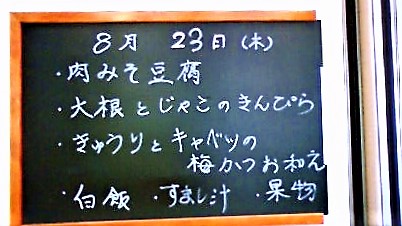 8月 23日(木)
・肉みそ豆腐
・大根とじゃこのきんぴら
・きゅうりとキャベツの
梅かつお和え
・白飯 ・すまし汁 ・果物